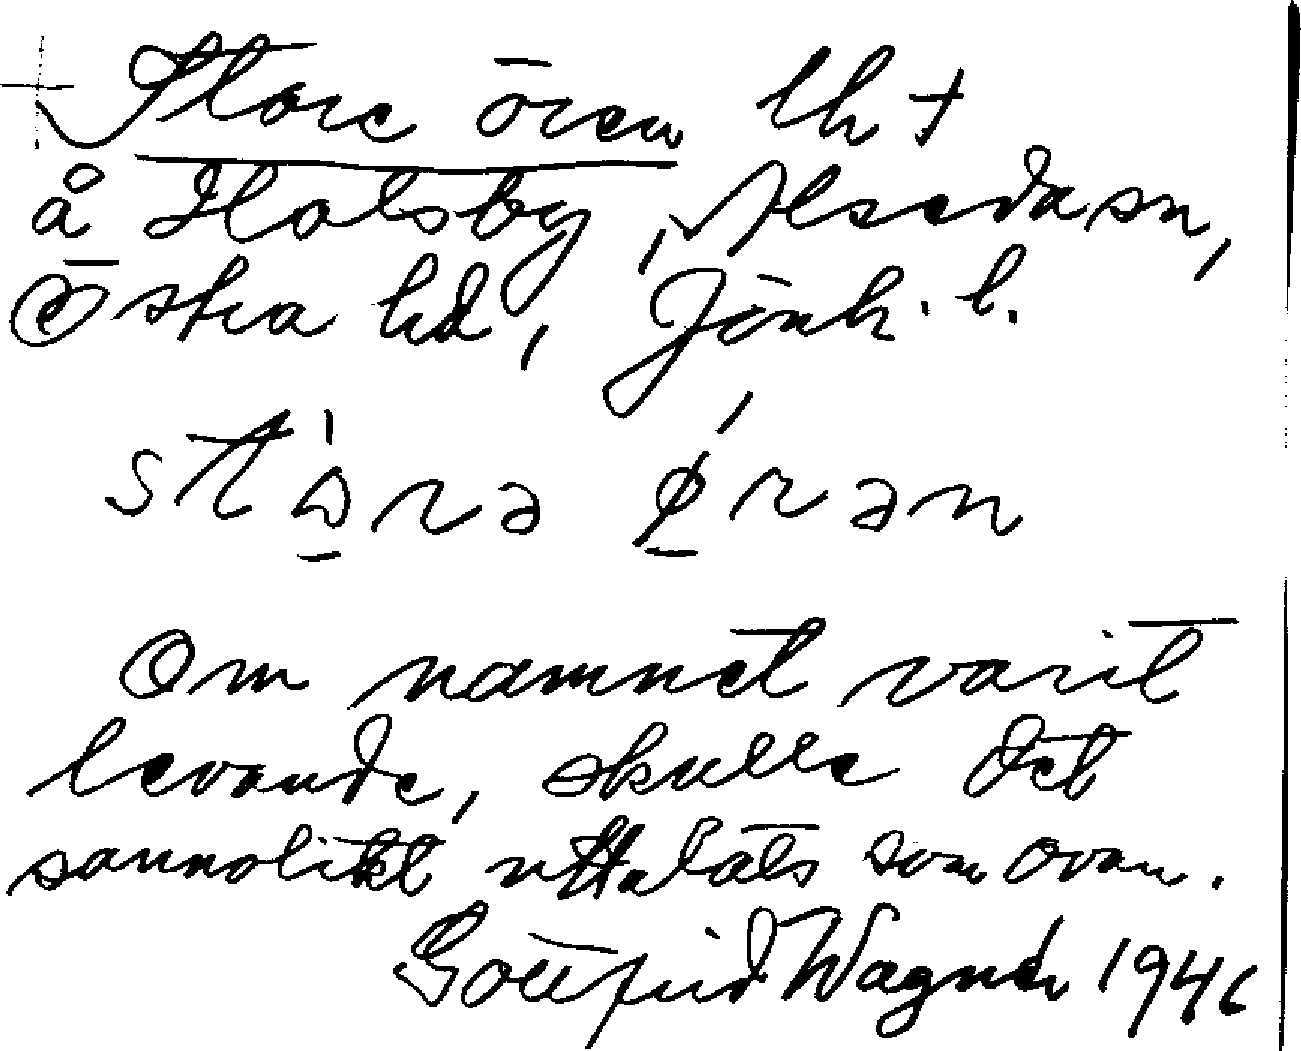 Store ören lh †
å Holsby, Alseda sn,
Östra hd, Jönk. l.
stɷ̀rə ǿrən
Om namnet varit
levande, skulle det
sannolikt uttalats som ovan.
Gottfrid Wagnér 1946